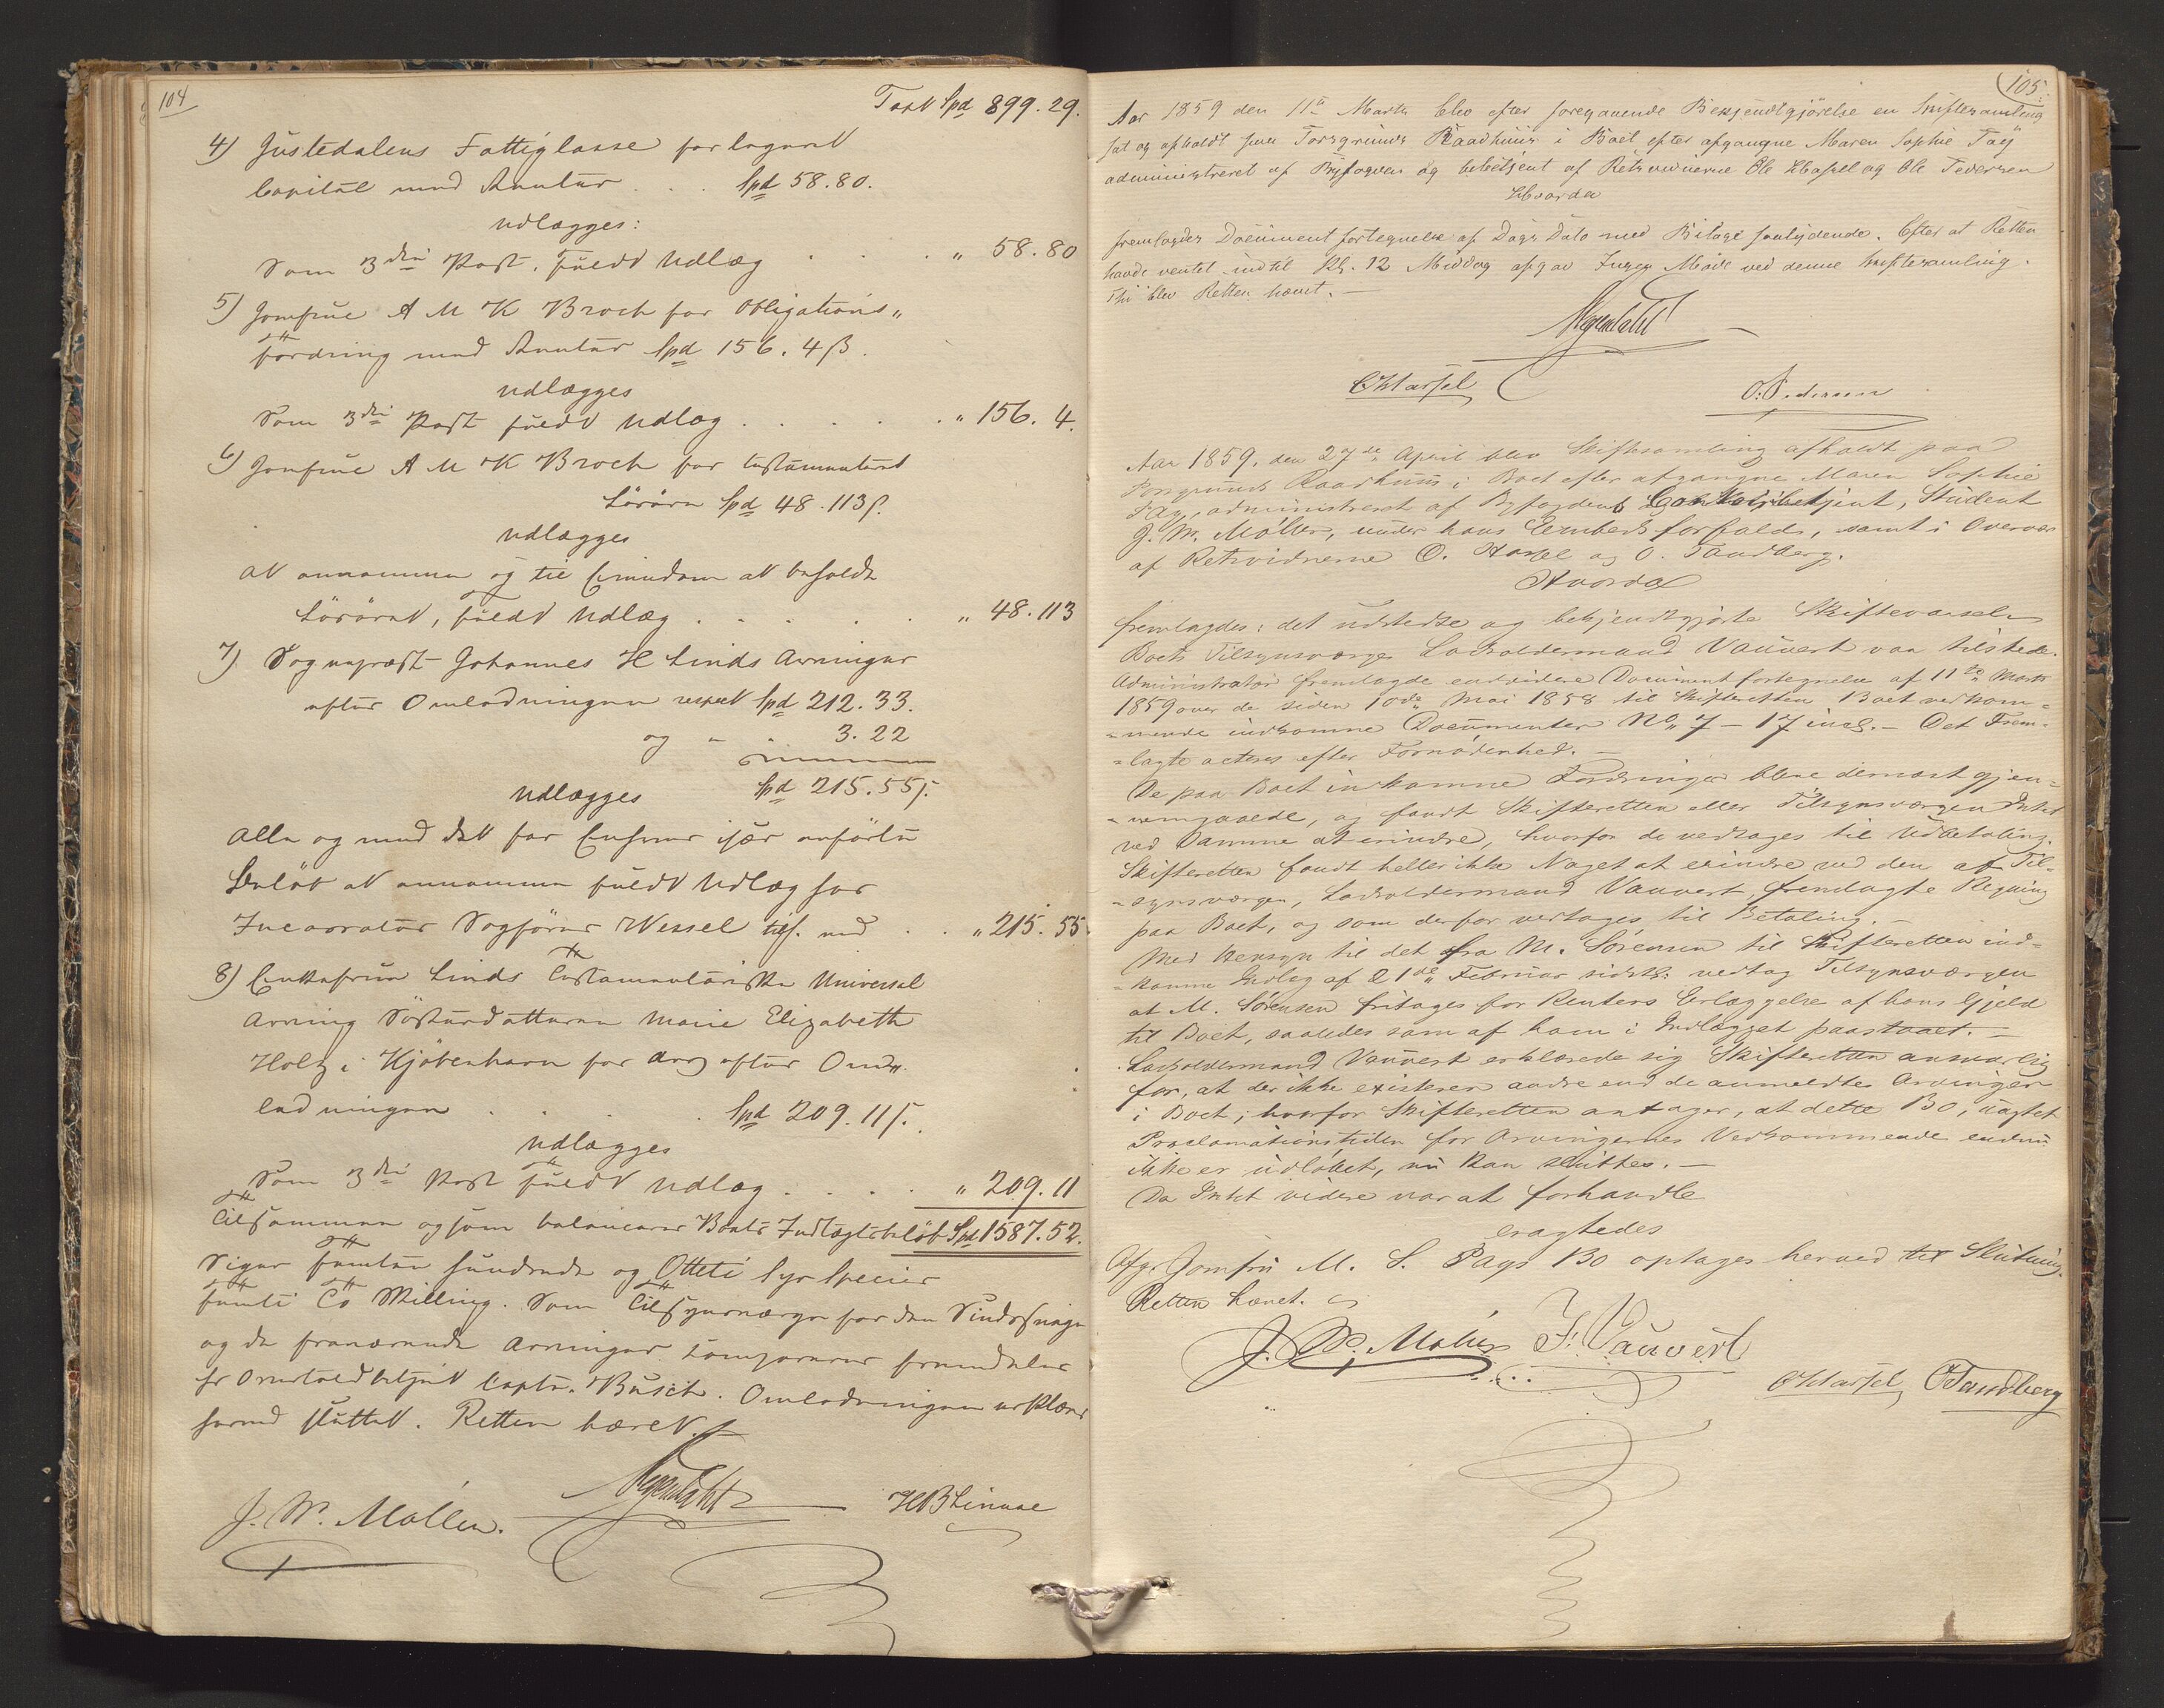 104
Tspt Spd 899.29.
4) Justedalens Fattigkasse for laant
Capital med Renter . . . Spd 58.80.
udlægges:
Som 3die Post, fuldt Udlæg . . . " 58.80
5) Jomfrue A M K Broch for Obligations„
fordring med Renter Spd 156. 4 ß.
udlægges
Som 3die Post fuldt Udlæg . . . . . " 156. 4.
6) Jomfrue A M K Broch for testamenteret
Spd 48.113 ß.
udlægges
at annamme og til Eiendom at beholde
fuldt Udlæg . . . . . " 48.113
7) Sognepræst Johannes H Linds Arvinger
efter Omlodningen respect Spd 212.33.
og " " 3.22
Spd 215.55 ß.
Udlægges
Alle og med det for Enhver især anførte
Beløb at annamme fuldt Udlæg hos
Incassator Sagfører Wessel tils. med . . " 215.55
8) Enkefrue Linds Testamentariske Universal
Arving Søsterdatteren Marie Elizabeth
Holtz i Kjøbenhavn for Arv efter Om„
lodningen . . . . Spd 209.11 ß.
Udlægges
Som 3die Post fuldt Udlæg . . . . " 209.11
Tilsammen og som balancerer Boets Indtægtsbeløb Spd 1587.52.
Siger femten hundrede og Otteti Syv Species
femti To Skilling. Som Tilsynsværge for den Sindssvage
og de fraværende Arvinger comparerer fremdeles
hr Overtoldbetjent Capt. Busch. Omlodningen erklæres
herved sluttet. Retten hævet.
J. W. Møller.
HBLinaae
105
Aar 1859 den 11te Marts blev efter foregaaende Bekjendtgjörelse en Skiftesamling
sat og afholdt paa Porsgrunds Raadhuus i Boet efter afgangne Maren Sophie Paÿ
administreret af Byfogden og betjent af Retsvidnerne Ole Hassel og Ole Pedersen
Hvorda
fremlagdes Document fortegnelse af Dags Dato med Bilage saalydende. Efter at Retten
havde ventet indtil Kl. 12 Middag afgav Ingen Möde ved denne Skiftesamling.
Thi blev Retten hævet. —
OHassel
O. Pedersen
Aar 1859, den 27de April blev Skiftsamling afholdt paa
Porsgrunds Raadhuus i Boet efter afgangne Maren Sophie
Pay, administreret af Byfogdens Contoirbetjent, Student
J. W. Møller, under hans Embeds forfald, samt i Overvær
af Retsvidnerne O. Hassel og O. Tandberg.
Hvorda
fremlagdes: det udstedte og bekjendtgjorte Skiftevarsel.
Boets Tilsynsværge Ladsoldermand Vauvert var tilstede.
Administrator fremlagde endvidere Document fortegnelse af 11te Marts
1859 over de siden 10de Mai 1858 til Skifteretten Boet vedkom=
=mende indkomne Documenter No 7 – 17 incl. – Det Frem=
=lagte acteres efter Fornødenhed. —
De paa Boet indkomne Fordringer bleve dernæst gjen=
=nemgaaede, og fandt Skifteretten eller Tilsynsværgen Intet
ved Samme at erindre, hvorfor de vedtages til Udbetaling.
Skifteretten fandt heller ikke Noget at erindre ved den af Til=
=synsværgen, Ladsoldermand Vauvert, fremlagte Regning
paa Boet, og som derfor vedtages til Betaling. —
Med Hensyn til det fra M. Sørensen til Skifteretten ind=
=komne Indlæg af 21de Februar sidstl. vedtog Tilsynsværgen
at M. Sørensen fritages for Renters Erlæggelse af hans Gjeld
til Boet, saaledes som af ham i Indlægget paastaaet. —
Ladsoldermand Vauvert erklærede sig Skifteretten ansvarlig
for, at der ikke existerer andre end de anmeldte Arvinger
i Boet; hvorfor Skifteretten antager, at dette Bo, uagtet
Proclamationstiden for Arvingernes Vedkommende endnu
ikke er udløbet, nu kan sluttes. —
Da Intet videre var at forhandle
eragtedes
Afgl. Jomfru M. S. Pays Bo optages herved til Slutning.
Retten hævet.
J. W. Møller F. Vauvert
OHassel OTandberg